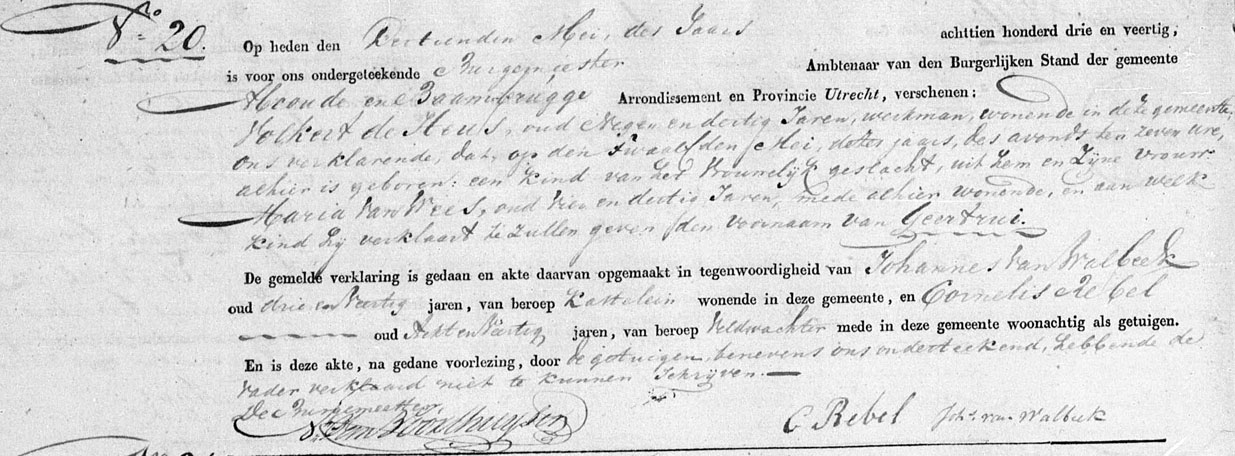 No 20.
Op heden den Dertienden Mei, des Jaars achttien honderd drie en veertig,
is voor ons ondergeteekende Burgemeester Ambtenaar van den Burgerlijken Stand der gemeente
Abcoude en Baambrugge Arrondissement en Provincie Utrecht, verschenen:
Volkert de Heus, oud Negen en dertig Jaren, werkman, wonende in deze gemeente,
ons verklarende, dat op den twaalfden Mei, dezes jaars, des avonds ten zeven ure,
alhier is geboren: een kind van het Vrouwelijk geslacht, uit hem en Zijne vrouw
Maria van Wees, oud vier en dertig Jaren, mede alhier wonende, en aan welk
kind hij verklaart te zullen geven den voornaam van Geertrui.
De gemelde verklaring is gedaan en akte daarvan opgemaakt in tegenwoordigheid van Johannes van Walbeek
oud drie en Veertig jaren, van beroep Kastelein wonende in deze gemeente, en Cornelis Rebel
oud Acht en Veertig jaren, van beroep Veldwachter mede in deze gemeente woonachtig als getuigen.
En is deze akte, na gedane voorlezing, door de getuigen, benevens ons onderteekend, hebbende de
vader verklaard niet te kunnen Schrijven.
De Burgemeester,
C Rebel Joh.s van Walbeek